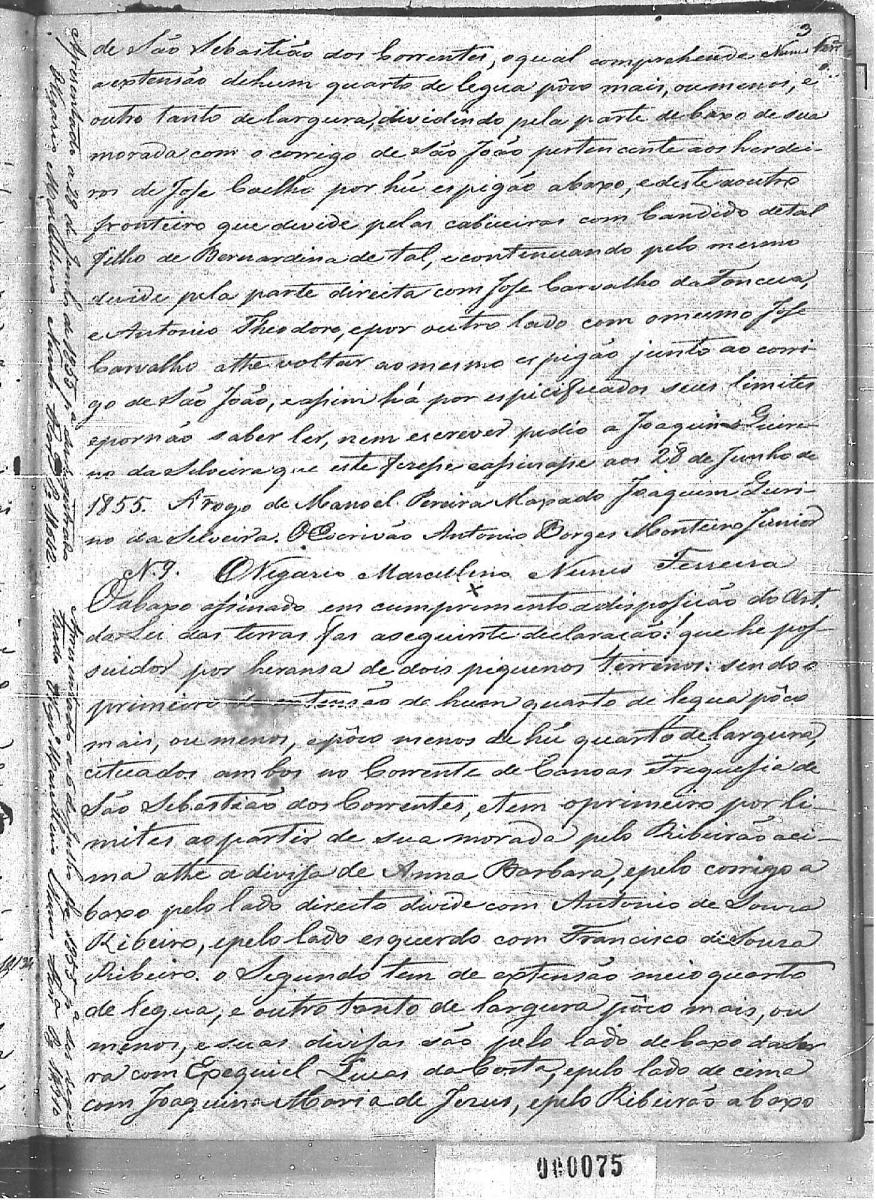 3
de São Sebastião dos Correntes, o qual comprehende
a extensão de hum quarto de legua pôco mais, ou menos, e
outro tanto de largura, dividindo pela parte de baxo de sua
morada com o corrigo de São João pertencente aos herdei-
ros de Jose Coelho por hú espigão abaxo, e deste ao outro
fronteiro que divide pelas cabiceiras com Candido de tal
filho de Bernardina de tal, e continuando pelo mesmo
divide pela parte direita com Jose Carvalho da Fonceca,
e Antonio Theodoro, e por outro lado com o mesmo Jose
Carvalho athe voltar ao mesmo espigão junto ao corri-
go de São João, e assim há por espicificados seus limites
e por não saber ler, nem escrever pedio a Joaquim
no da Silveira que este fizesse e assinasse aos 28 de Junho de
1855. A rogo de Manoel Pereira Maxado Joaquim Guiri-
no da Silveira. O Escrivão Antonio Borges Monteiro Junior
N. 9. O Vigario Marcellino Nunes Ferreira
O abaxo assinado em cumprimento a disposição do Art.
da Lei das terras fas a seguinte declaração: que he pos-
suidor por heransa de dois piquenos terrenos: sendo o
primeiro de extensão de hum quarto de legua pôco
mais, ou menos, e pôco menos de hú quarto de largura,
cituados ambos no Corrente de Canoas Freguesia de
São Sebastião dos Correntes, e tem o primeiro por li-
mites ao partir de sua morada pelo Ribeirão aci-
ma athe a divisa de Anna Barbara, e pelo corrigo a
baxo pelo lado direito divide com Antonio de Souza
Ribeiro, e pelo lado esquerdo com Francisco de Souza
Ribeiro. o Segundo tem de extensão meio quarto
de legua, e outro tanto de largura pôco mais, ou
menos, e suas divisas são pelo lado de baxo da
ra com Exequiel Lucas da Costa, e pelo lado de cima
com Joaquina Maria de Jezus, e pelo Ribeirão abaxo
Apresentado a 28 de Junho de 1855
Apresentado a 5 de Julho de 1855
000075